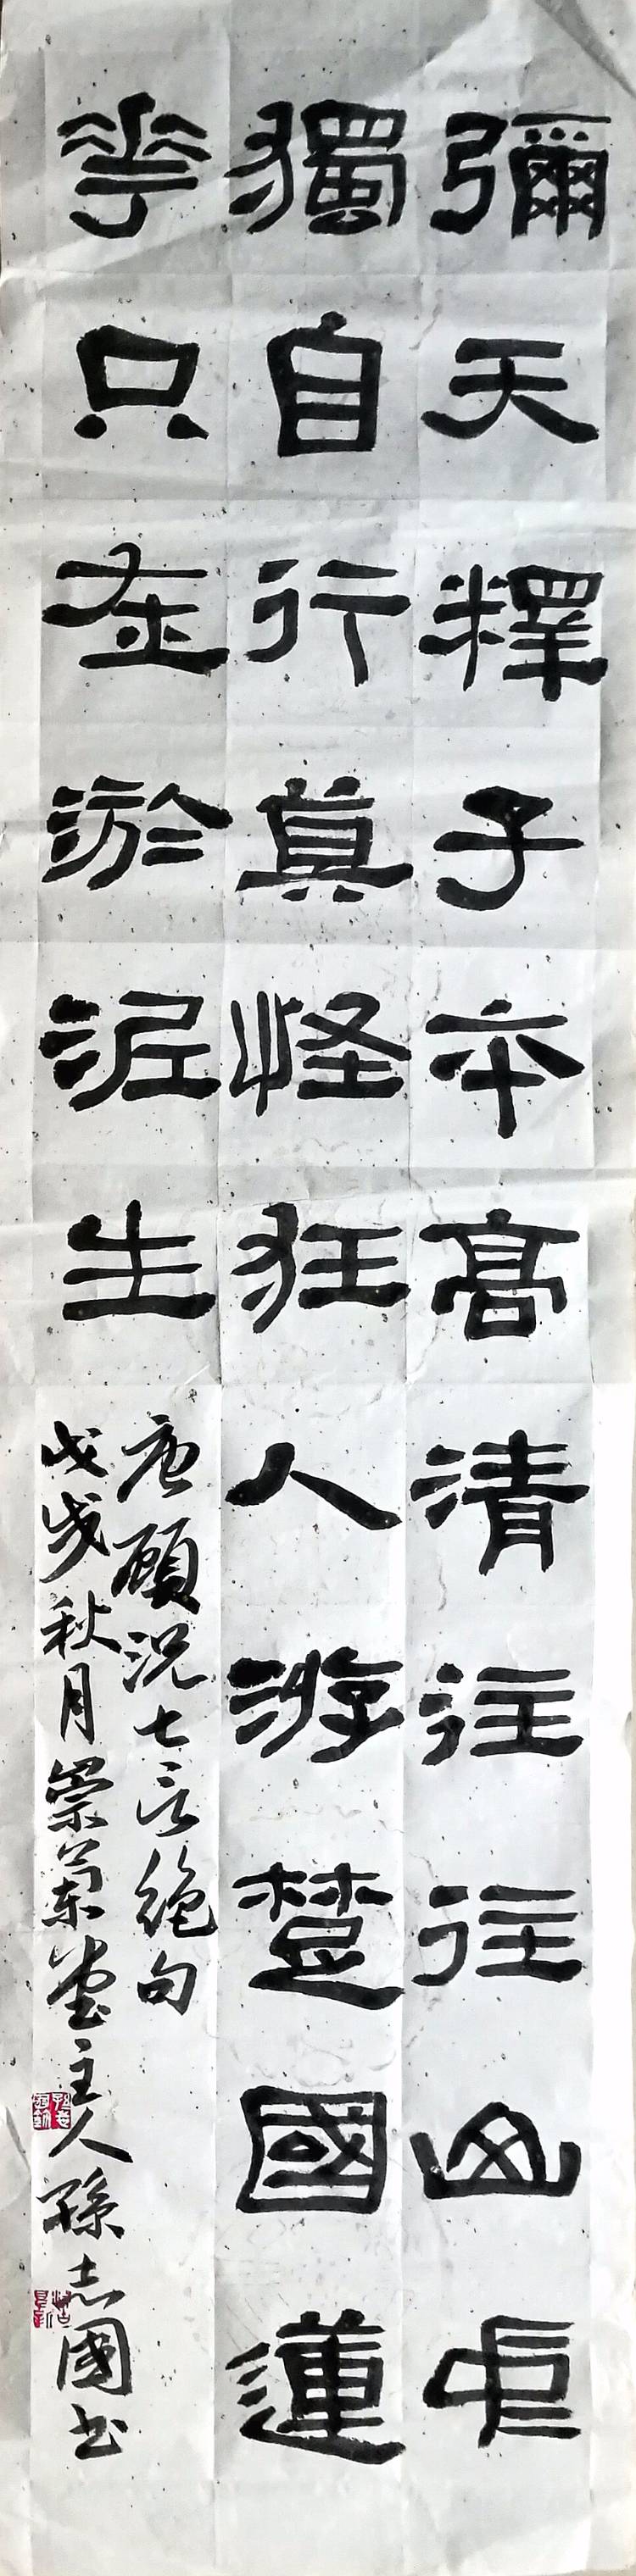 彌天釋子本高清往往山中
獨自行莫怪狂人游楚國蓮
花只在淤泥生
唐顧況七言絕句
戊戌秋月崇蘭堂主人孫志國書